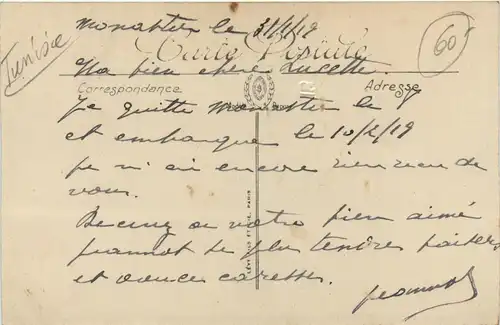 Tunisie
60
monastir le 31/1/19
Carte Postale
Ma bien chère Lucette
Correspondance
Adresse
Je quitte monastir le 7
et embarque le 10/2/19
je n'ai encore rien reçu de
vous.
Recevez de votre bien aimé
jeannot de plus tendres baisers
et douces caresses.
jeannot
PARIS